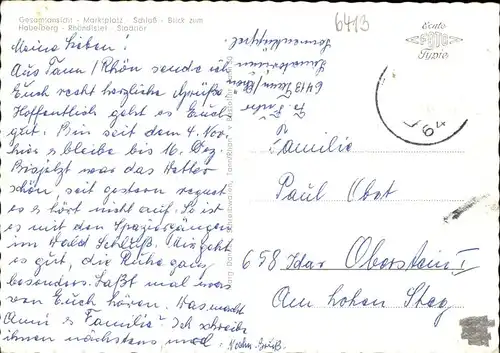 Gesamtansicht - Marktplatz Schloß - Blick zum
Habelberg - Rhöndistel - Stadttor
6413
Echte
FOTO
Typie
Meine Lieben!
Aus Tann/Rhön sende ich
Euch recht herzliche Grüße
Hoffentlich geht es Euch
gut. Bin seit dem 4. Nov.
hier & bleibe bis 16. Dez.
Bis jetzt war das Wetter
schön, seit gestern regnet
es & hört nicht auf. So ist
es mit den Spaziergängen
im Wald Schluß. Mir geht
es gut, die Ruhe ganz
besonders. Laßt mal was
von Euch hören. Was macht
Anni & Familie? Ich schreibe
ihnen nächstens mal.
Sanatorium
6413 Tann/Rhön
64
Familie
Paul Obst
658 Idar Oberstein I
Am hohen Steg